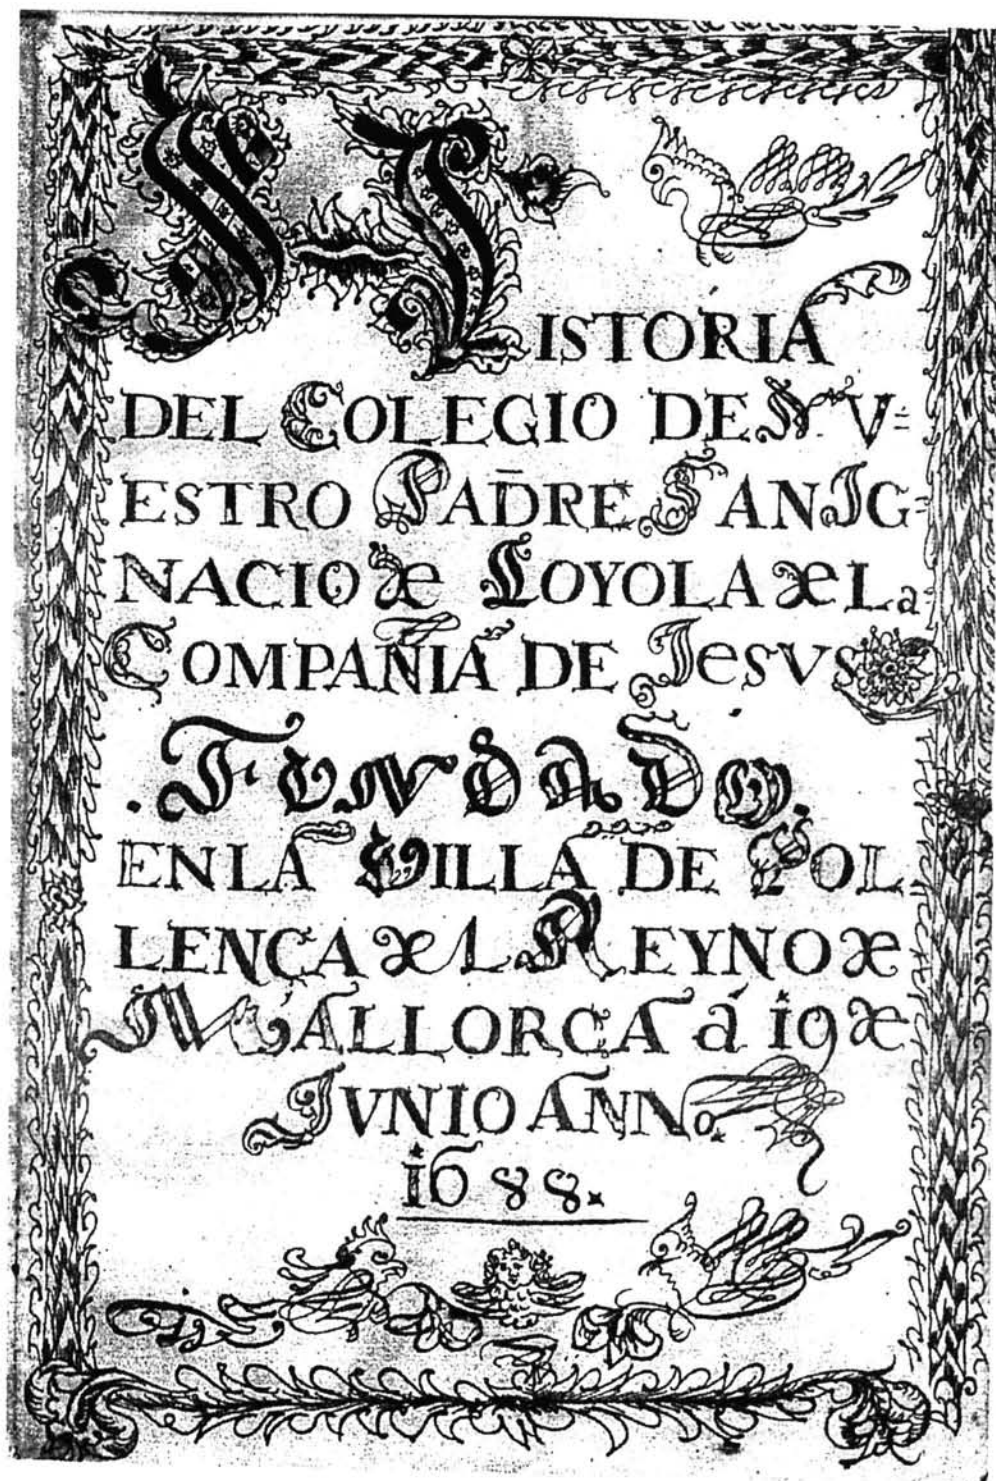 HISTORIA
DEL COLEGIO DE NV=
ESTRO PADRE SAN IG=
NACIO de LOYOLA de La
COMPAÑIA DE JesVS
. FUNDADO.
EN LA VILLA DE POL
LENÇA deL REYNO de
MALLORCA á 19 de
JVNIO ANNo.
1688.